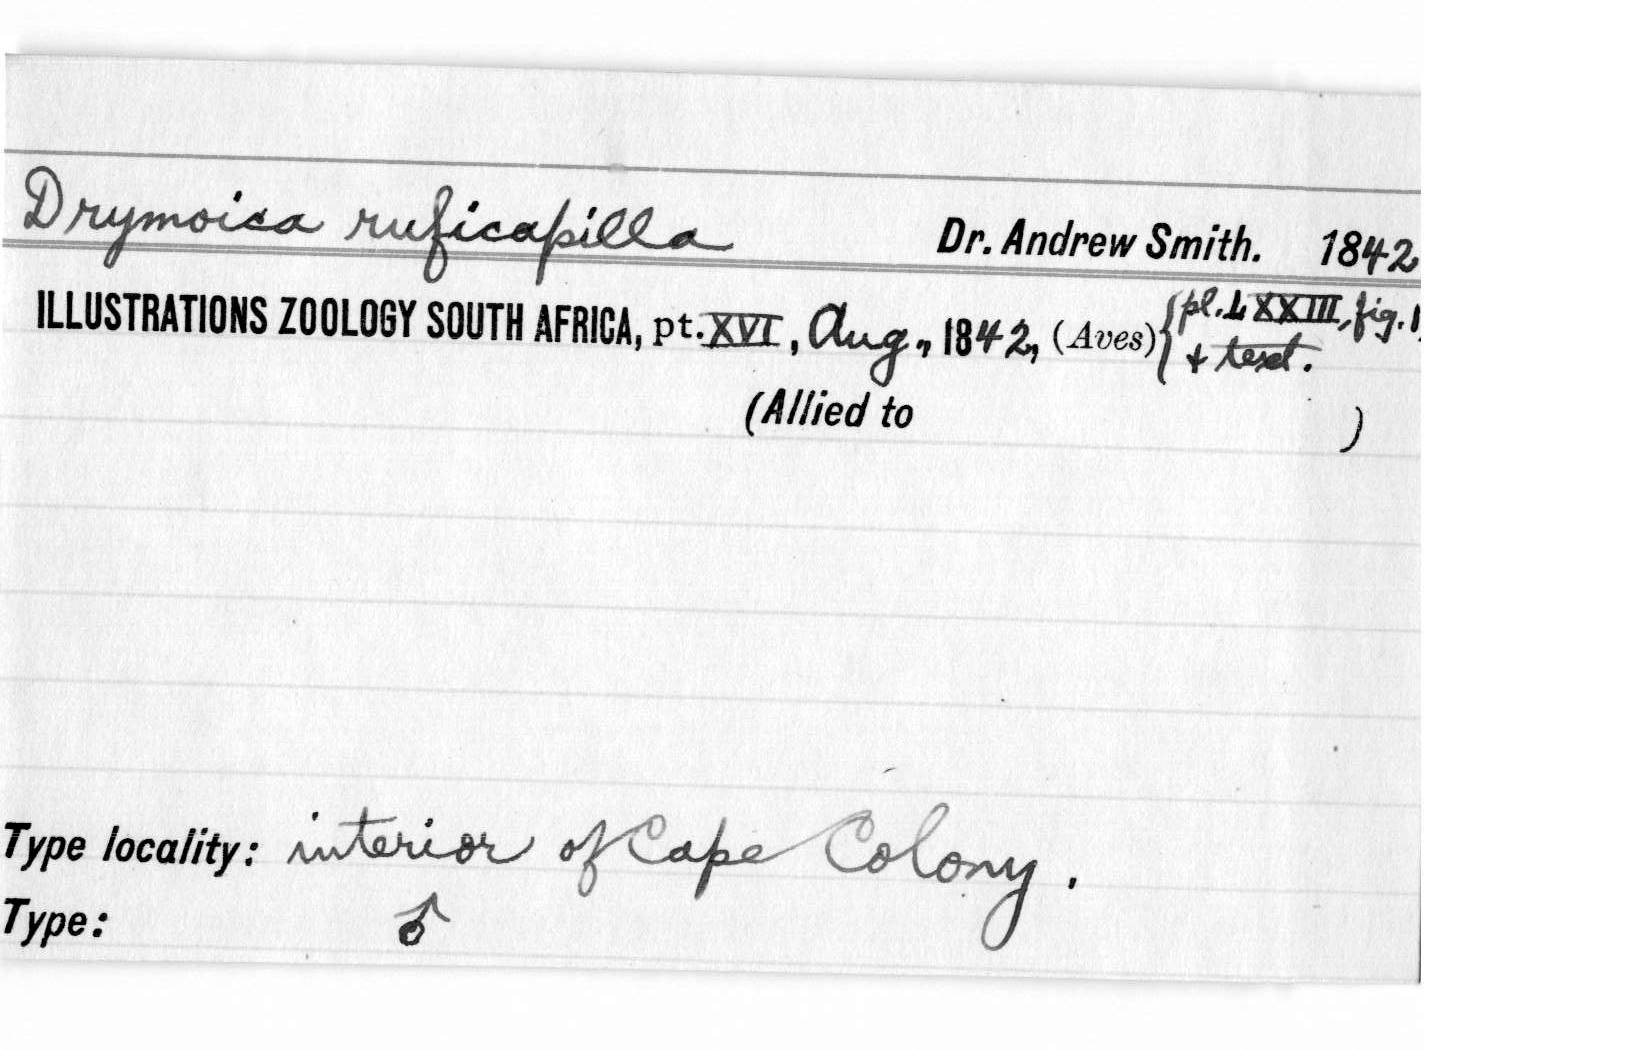 Drymoica ruficapilla Dr. Andrew Smith. 1842
ILLUSTRATIONS ZOOLOGY SOUTH AFRICA, pt. XVI, Aug., 1842, (Aves) { pl. LXXIII, fig. 1,
& text.
(Allied to )
Type locality: interior of Cape Colony.
Type: ♂